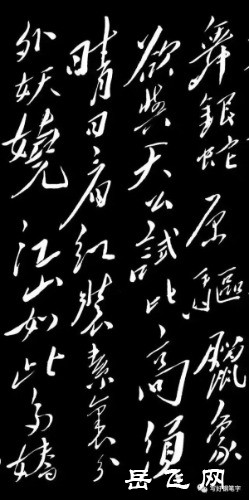 舞银蛇原驱腊象
欲与天公试比高须
晴日看红装素裹分
外妖娆江山如此多娇
岳飞网
写好钢笔字